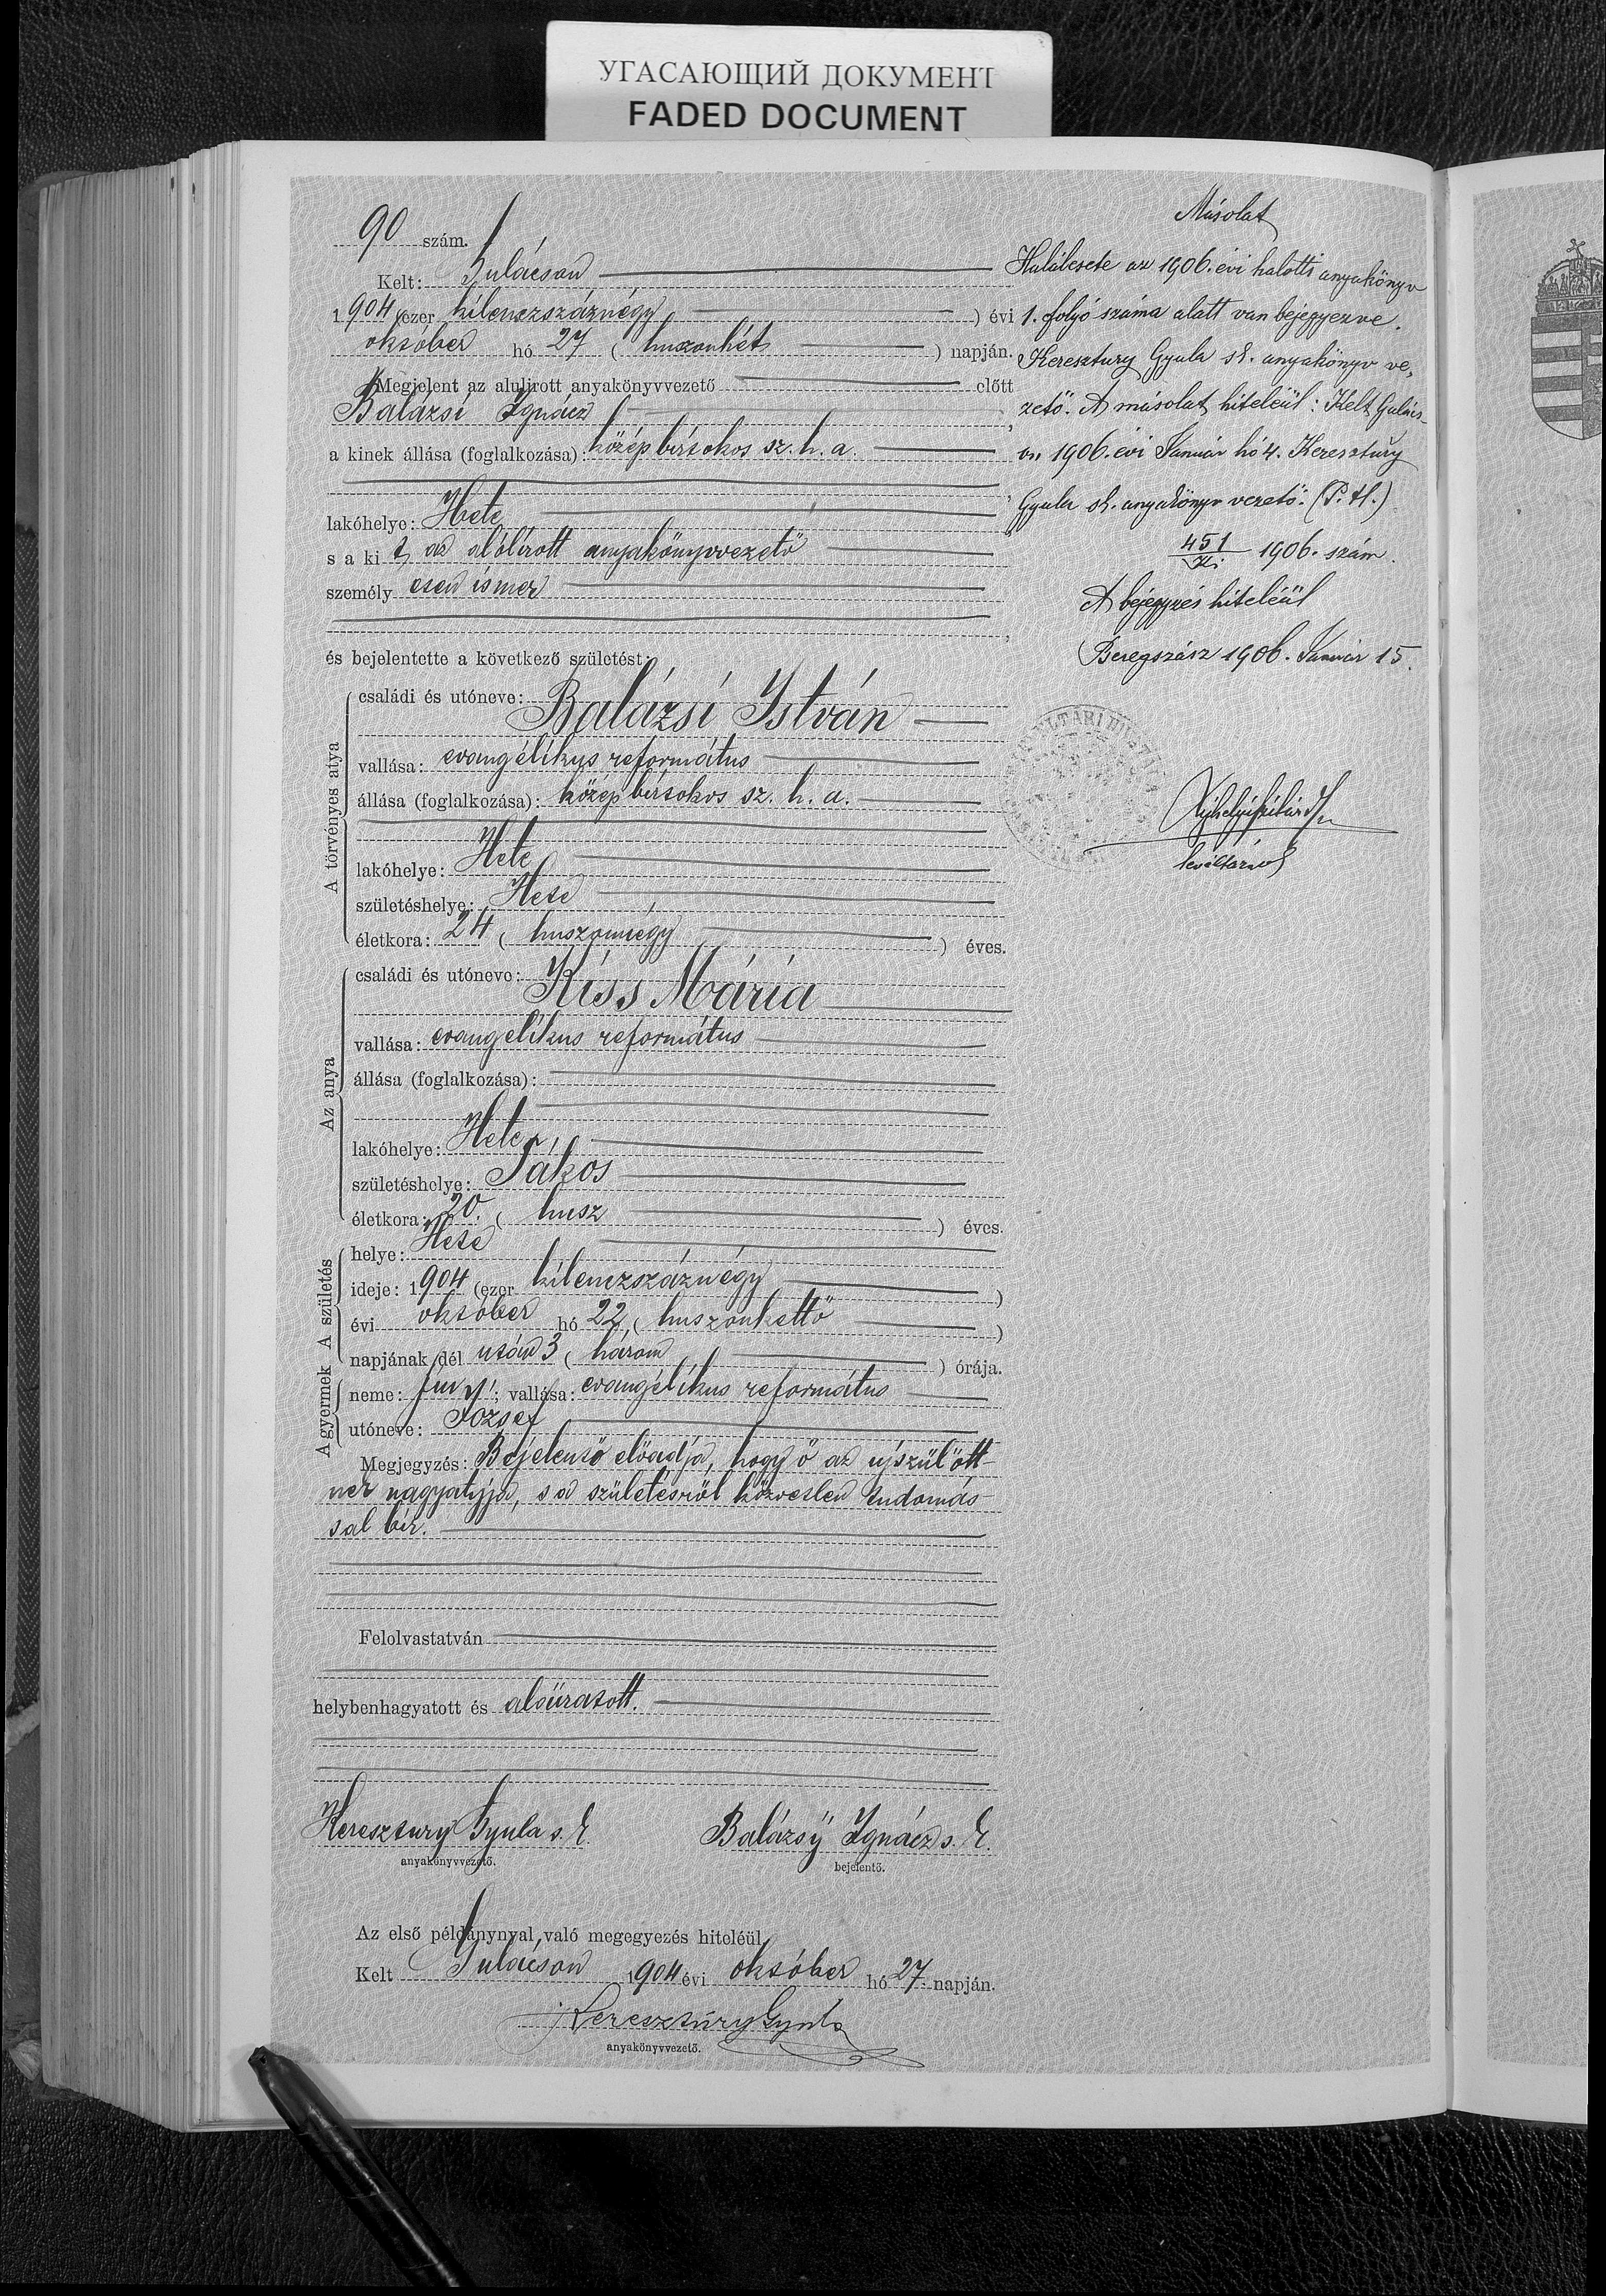 УГАСАЮЩИЙ ДОКУМЕНТ
FADED DOCUMENT
90 szám.
Kelt: Gulácson
1904 (ezer kilenczszáznégy ) évi
október hó 27 ( huszonhét ) napján.
Megjelent az alulirott anyakönyvvezető előtt
Balázsi Ignácz
a kinek állása (foglalkozása): közép birtokos sz. h. a.
lakóhelye: Hete
s a ki t az alólírott anyakönyvvezető
személyesen ismer
és bejelentette a következő születést:
A törvényes atya
családi és utóneve: Balázsi István
vallása: evangélikus református
állása (foglalkozása): közép birtokos sz. h. a.
lakóhelye: Hete
születéshelye: Hete
életkora: 24 ( huszonnégy ) éves.
Az anya
családi és utóneve: Kiss Mária
vallása: evangelikus református
állása (foglalkozása):
lakóhelye: Hete
születéshelye: Tákos
életkora: 20. ( husz ) éves.
A születés
helye: Hete
ideje: 1904 (ezer kilenczszáznégy )
évi október hó 22, ( huszonkettő )
napjának dél után 3 ( három ) órája.
A gyermek
neme: fiu; vallása: evangélikus református
utóneve: József
Megjegyzés: Bejelentő előadja, hogy ő az újszülött-
nek nagyatyja, s a születésről közvetlen tudomás-
sal bir.
Felolvastatván
helybenhagyatott és aláiratott.
Keresztury Gyula s. k.
anyakönyvvezető.
Balázsy Ignácz s. k.
bejelentő.
Az első példánynyal való megegyezés hiteléül
Kelt Gulácson 1904 évi október hó 27. napján.
Keresztúry Gyula
anyakönyvvezető.
Másolat
Halálesete az 1906. évi halotti anyakönyv
1. folyó száma alatt van bejegyezve.
Keresztury Gyula sk. anyakönyv ve-
zető. A másolat hiteléül: Kelt Gulács-
on 1906. évi Január hó 4. Keresztúry
Gyula sk. anyakönyv vezető. (P. H.)
451 1906. szám.
A bejegyzés hiteléül
Beregszász 1906. Január 15.
levéltárnok